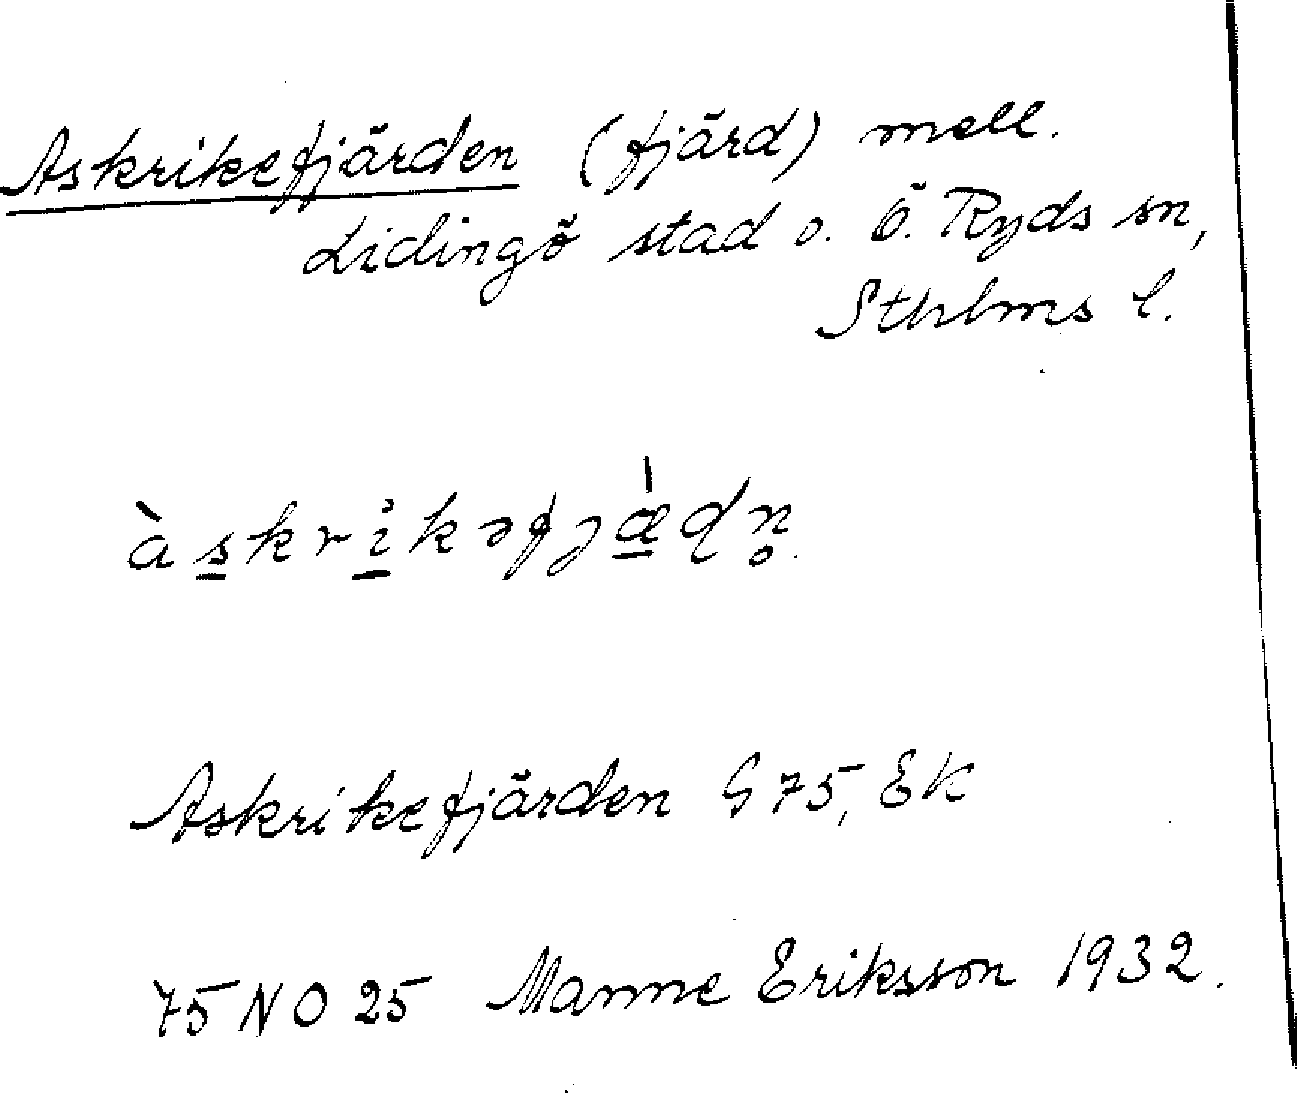 Askrikefjärden (fjärd) mell.
Lidingö stad o. Ö. Ryds sn,
Sthlms l.
àskrikəfjæ̀ɖn̥.
Askrikefjärden G 75, Ek
75 NO 25 Manne Eriksson 1932.